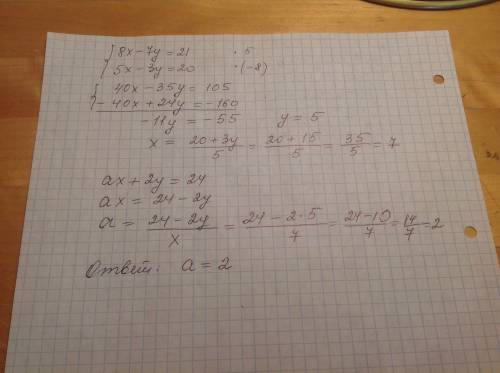 8x - 7y = 21 · 5
5x - 3y = 20 · (-8)
40x - 35y = 105
- 40x + 24y = -160
-11y = -55 y = 5
x = 20 + 3y / 5 = 20 + 15 / 5 = 35 / 5 = 7
ax + 2y = 24
ax = 24 - 2y
a = 24 - 2y / x = 24 - 2·5 / 7 = 24 - 10 / 7 = 14 / 7 = 2
Ответ: a = 2